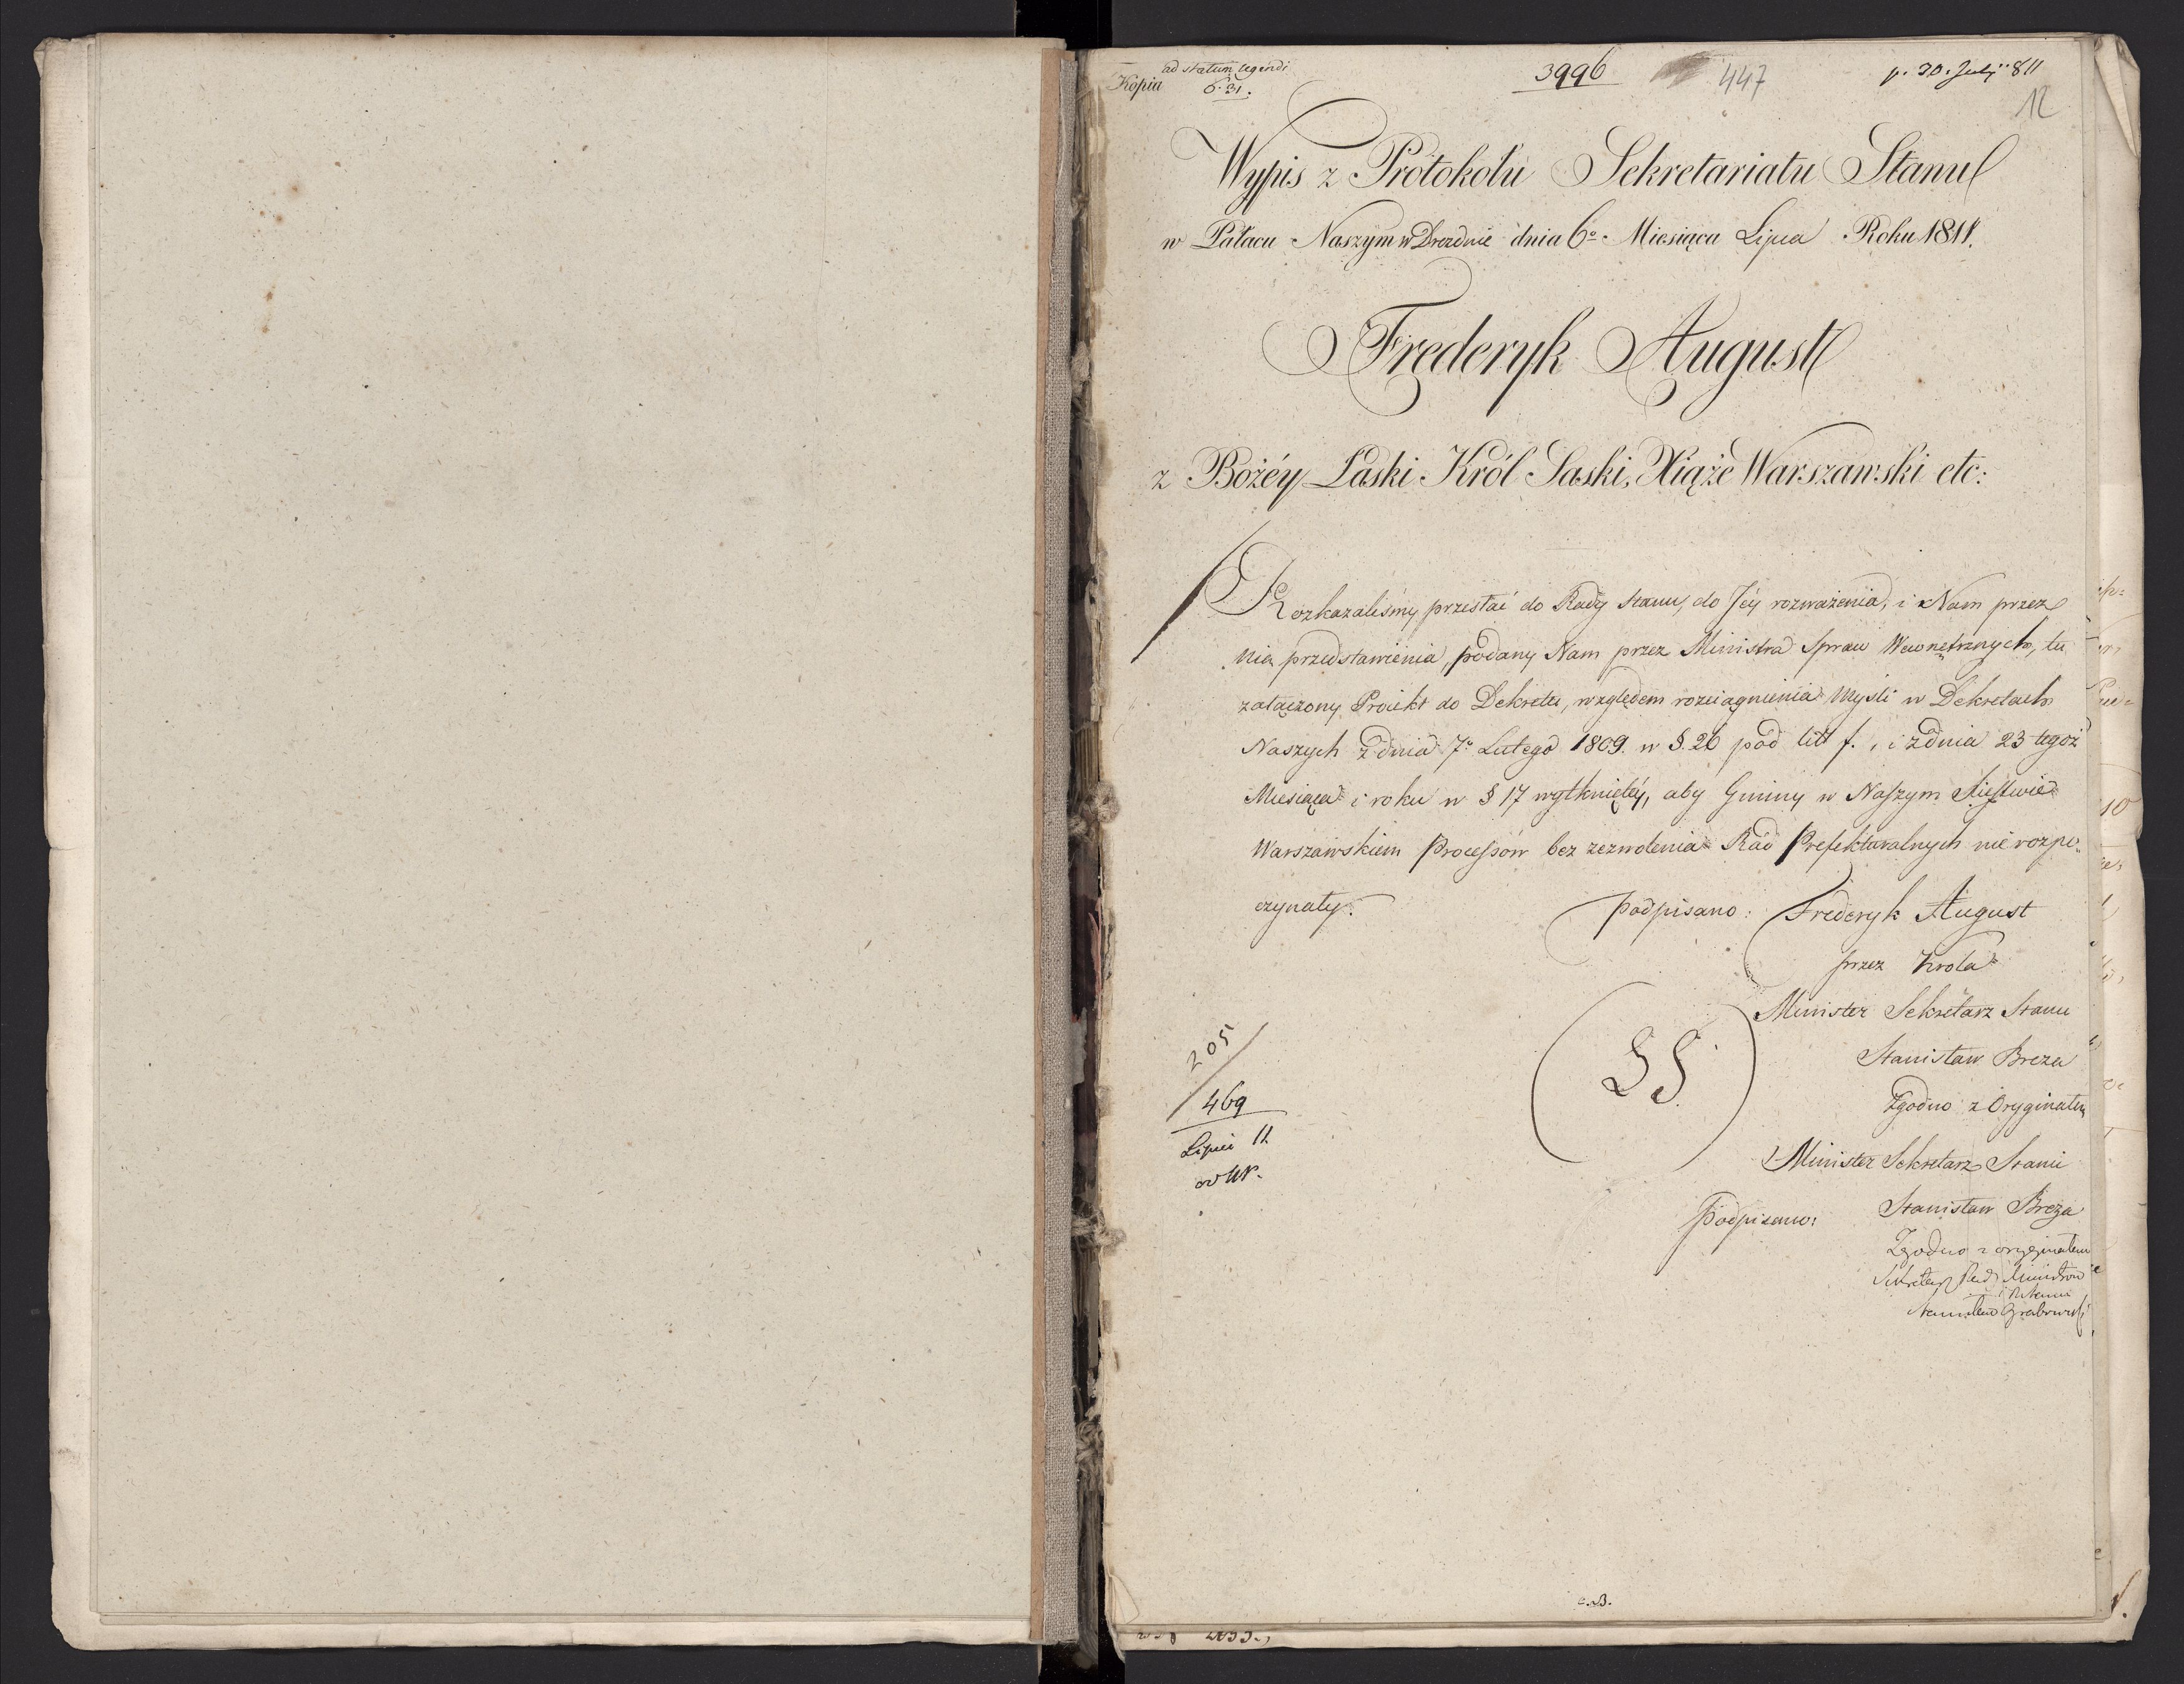 ad statum legendi
Kopia 6. 31.
3996
447
p. 30. Julij 811
12
Wypis z Protokołu Sekretariatu Stanu
w Pałacu Naszym w Dreznie dnia 6º Miesiąca Lipca Roku 1811.
Frederyk August
z Bożéy Łaski Król Saski, Xiąże Warszawski etc:
Rozkazaliśmy przesłać do Rady Stanu, do Jéy rozważenia, i Nam przez
nią przedstawienia, podany Nam przez Ministra Spraw Wewnętrznych, tu
załączony Proiekt do Dekretu, względem rozciągnienia Myśli w Dekretach
Naszych z dnia 7º Lutego 1809. w §. 26 pod litt f., i z dnia 23 tegoż
Miesiąca i roku w § 17 wytkniętéy, aby Gminy w Naszym Xięstwie
Warszawskiem Processów bez zezwolenia Rad Prefekturalnych nie rozpo=
czynały.
podpisano: Frederyk August
przez Krola
Minister Sekretarz Stanu
Stanisław Breza
Zgodno z Oryginałem
Minister Sekretarz Stanu
Podpisano: Stanisław Breza
Zgodno z oryginałem
Sekretarz Rady Ministrow
i Stanu
Stanisław Grabowski
205
469
Lipca 11